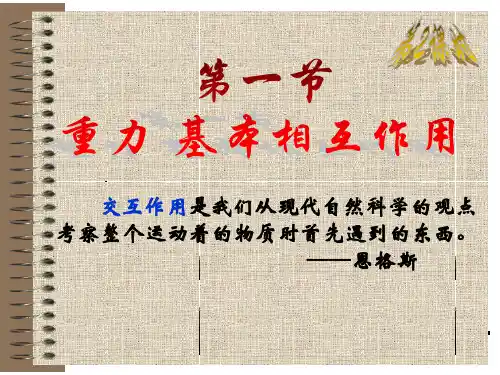 第一节
重力 基本相互作用
交互作用是我们从现代自然科学的观点
考察整个运动着的物质时首先遇到的东西。
——恩格斯